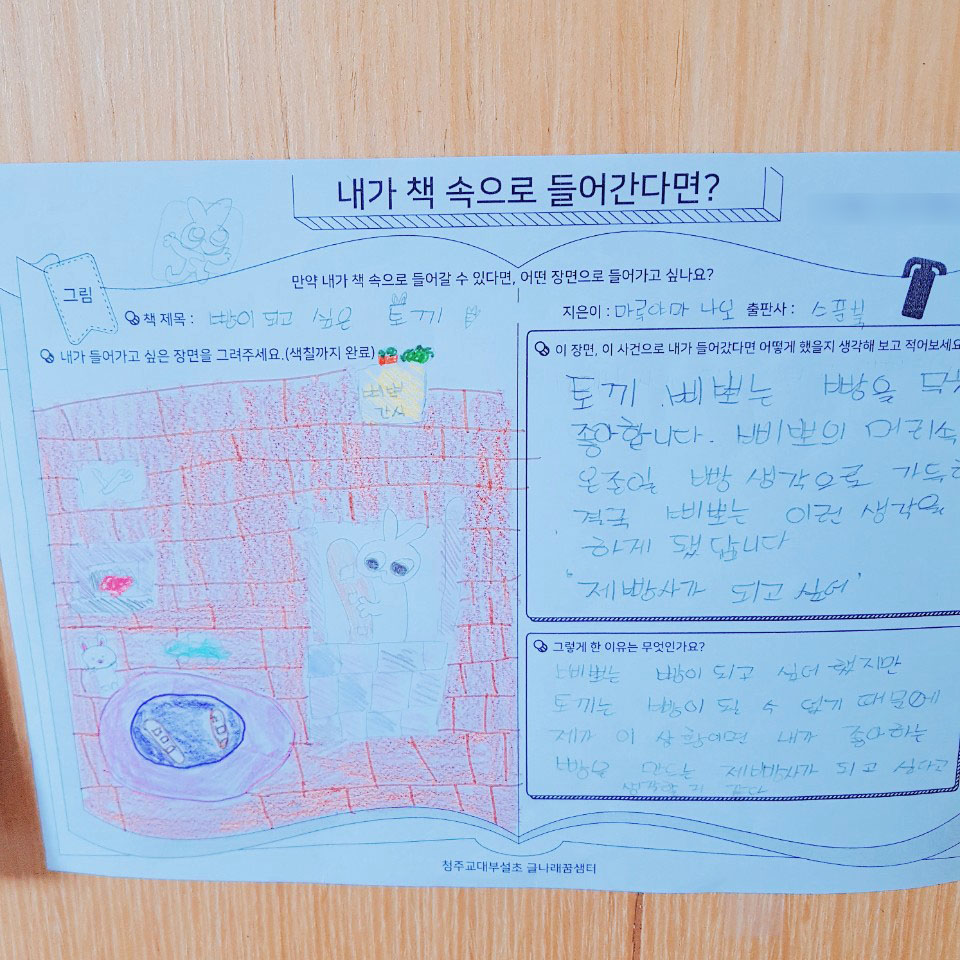 내가 책 속으로 들어간다면?
만약 내가 책 속으로 들어갈 수 있다면, 어떤 장면으로 들어가고 싶나요?
그림
책 제목 : 빵이 되고 싶은 토끼
지은이 : 마루야마 나오 출판사 : 스푼북
내가 들어가고 싶은 장면을 그려주세요.(색칠까지 완료)
삐뽀
간식
이 장면, 이 사건으로 내가 들어갔다면 어떻게 했을지 생각해 보고 적어보세요
토끼 삐뽀는 빵을
좋아합니다. 삐뽀의 머리속
온존일 빵 생각으로 가득
결국 삐뽀는 이런 생각을
하게 됐답니다
'제빵사가 되고 싶어'
그렇게 한 이유는 무엇인가요?
삐뽀는 빵이 되고 싶어 했지만
토끼는 빵이 될 수 없기 때문에
제가 이 상황이면 내가 좋아하는
빵을 만드는 제빵사가 되고 싶다고
생각할 거 같다
청주교대부설초 글나래꿈샘터